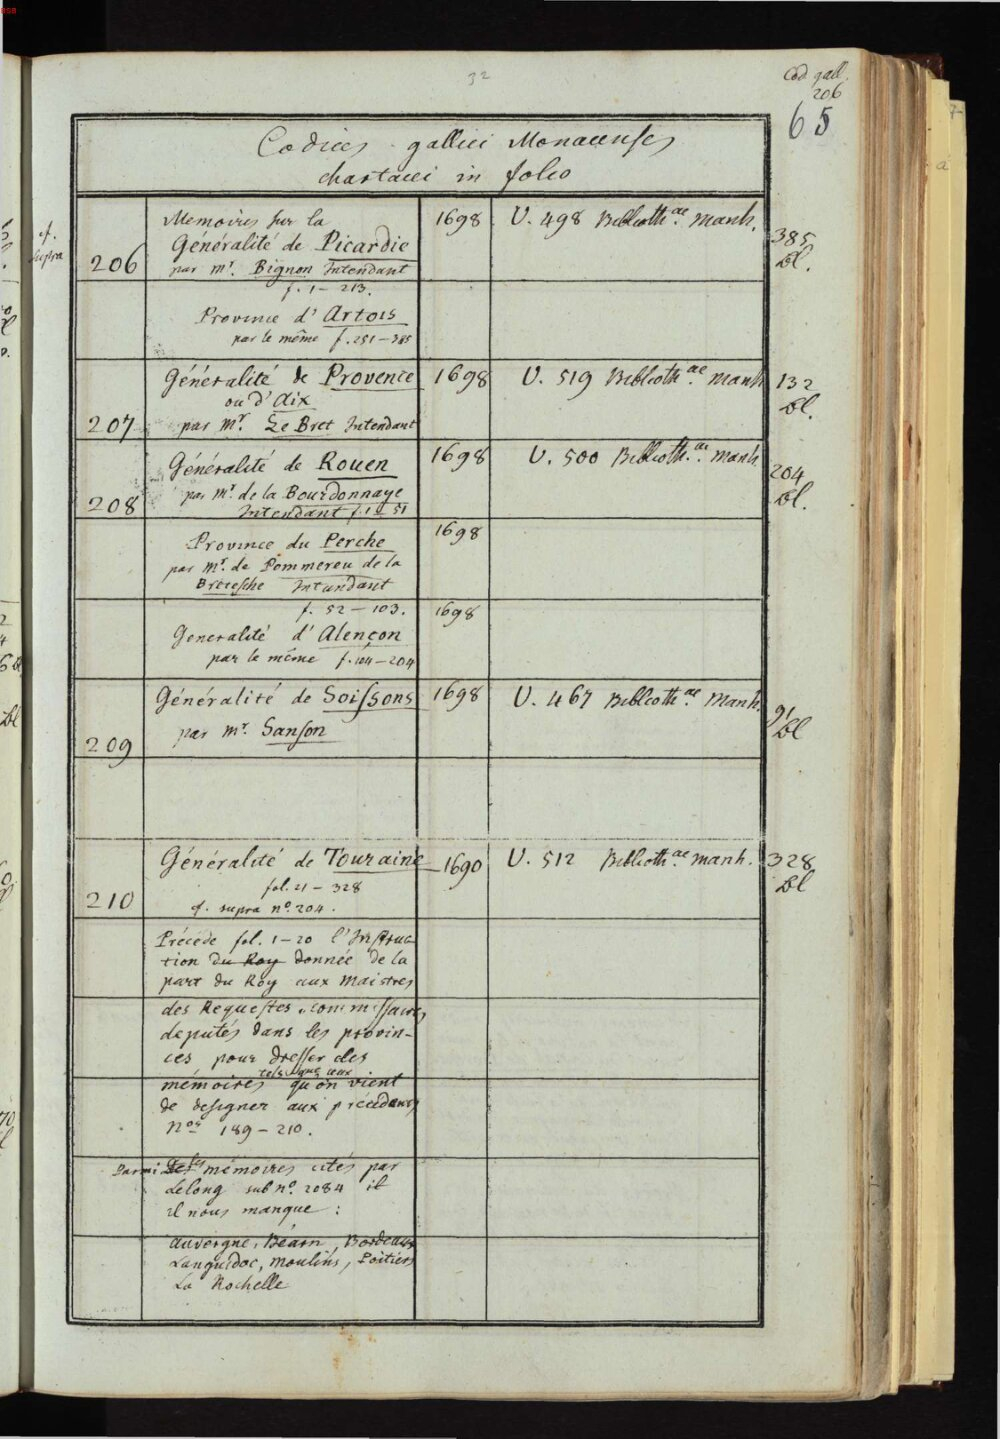 32
Cod. gall.
206
65
Codices gallici Monacenses
chartacei in folio
cf.
supra
206
Memoires sur la
Généralité de Picardie
par mr. Bignon Intendant
f. 1 - 213.
1698
U. 498 Biblioth.ae Manh.
385
bl.
Province d' Artois
par le même f. 251 - 385
207
Généralité de Provence
ou d' Aix
par Mr. Le Bret Intendant
1698
U. 519 Biblioth.ae Manh
132
bl.
208
Généralité de Rouen
par Mr. de la Bourdonnaye
Intendant f. 1 - 51
1698
U. 500 Biblioth.ae Manh
204
bl.
Province du Perche
par Mr. de Pommereu de la
Bretesche Intendant
f. 52 - 103.
1698
Generalité d' Alençon
par le même f. 104 - 204
1698
209
Généralité de Soissons
par Mr. Sanson
1698
U. 467 Biblioth.ae Manh.
91
bl
210
Généralité de Touraine
fol. 21 - 328
cf. supra no. 204.
1690
U. 512 Biblioth.ae Manh.
328
bl
Précède fol. 1-20 l'Instruc
tion du Roy donnée de la
part du Roy aux Maistres
des Requestes, commissaires
deputés dans les provin-
ces pour dresser des
mémoires tels que ceux qu'on vient
de designer aux précédents
Nos 189 - 210.
Parmi les mémoires cités par
Lelong sub no. 2084 il
il nous manque :
Auvergne, Béarn, Bordeaux
Languedoc, Moulins, Poitiers
La Rochelle